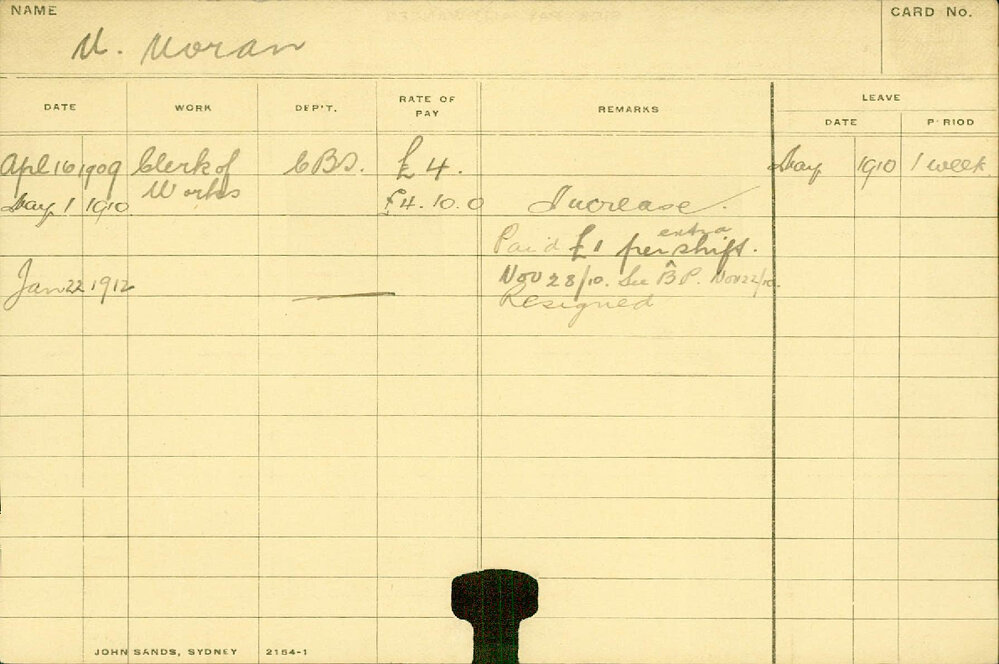 NAME
M. Moran
CARD No.
DATE WORK DEP'T. RATE OF PAY REMARKS LEAVE
DATE PERIOD
Apl 16 1909 Clerk of Works CBD. £4. May 1910 1 week
May 1 1910 £4.10.0 Increase.
Paid £1 per extra shift.
Nov 28/10. See B.P. Nov 22/10.
Jan 22 1912 Resigned
JOHN SANDS, SYDNEY 2154-1